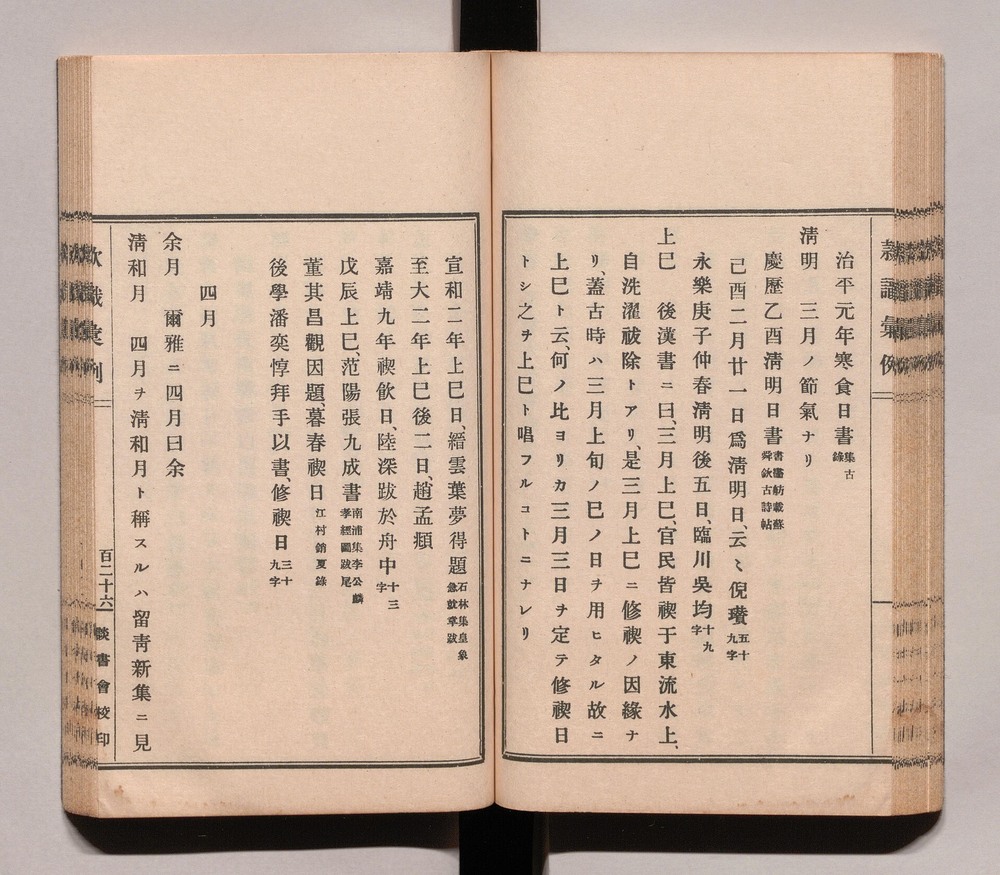 治平元年寒食日書集古錄
淸明　三月ノ節氣ナリ
慶歷乙酉淸明日書書畫舫載蘇舜欽古詩帖
己酉二月廿一日爲淸明日、云〻倪瓚五十九字
永樂庚子仲春淸明後五日、臨川吳均十九字
上巳　後漢書ニ曰、三月上巳、官民皆禊于東流水上、
自洗濯祓除トアリ、是三月上巳ニ修禊ノ因緣ナ
リ、蓋古時ハ三月上旬ノ巳ノ日ヲ用ヒタル故ニ
上巳ト云、何ノ比ヨリカ三月三日ヲ定テ修禊日
トシ之ヲ上巳ト唱フルコトニナレリ
宣和二年上巳日、縉雲葉夢得題石林集皇象急就章跋
至大二年上巳後二日、趙孟頫
嘉靖九年禊飮日、陸深跋於舟中十三字
戊辰上巳、范陽張九成書南浦集李公麟孝經圖跋尾
董其昌觀因題、暮春禊日江村銷夏錄
後學潘奕惇拜手以書、修禊日三十九字
四月
余月　爾雅ニ四月曰余
淸和月　四月ヲ淸和月ト稱スルハ留靑新集ニ見
百二十六　談書會校印